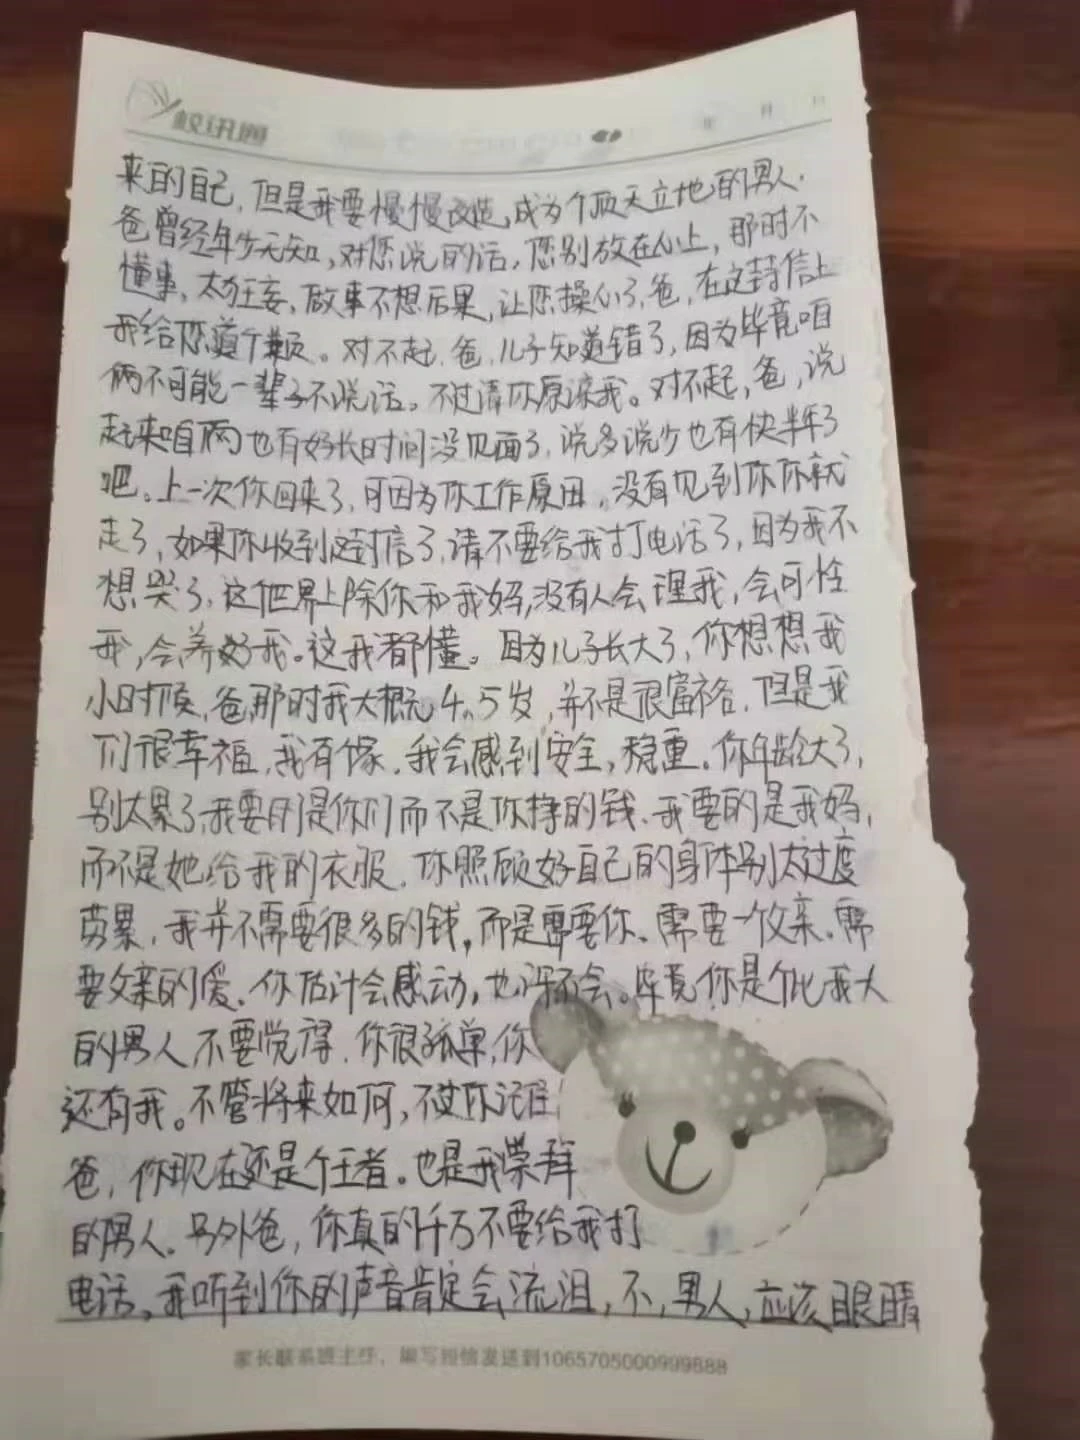 校讯通
年 月 日
来的自己，但是我要慢慢改造，成为个顶天立地的男人．
爸曾经年少无知，对您说的话，您别放在心上，那时不
懂事，太狂妄，做事不想后果，让您操心了，爸，在这封信上
我给您道个歉。对不起，爸，儿子知道错了，因为毕竟咱
俩不可能一辈子不说话，不过请你原谅我。对不起，爸，说
起来咱俩也有好长时间没见面了，说多说少也有快半年了
吧。上一次你回来了，可因为你工作原因，没有见到你你就
走了，如果你收到这封信了，请不要给我打电话了，因为我不
想哭了，这个世界上除你和我妈，没有人会理我，会可怜
我，会养好我。这我都懂。因为儿子长大了，你想想我
小时候，爸，那时我大概4、5岁，并不是很富裕，但是我
们很幸福，我有个家．我会感到安全，稳重．你年龄大了，
别太累了，我要的是你们而不是你挣的钱、我要的是我妈，
而不是她给我的衣服．你照顾好自己的身体别太过度
劳累，我并不需要很多的钱，而是需要你、需要一个父亲．需
要父亲的爱．你估计会感动，也许不会。毕竟你是个比我大
的男人 不要觉得．你很孤单，你
还有我。不管将来如何，不过你记住
爸，你现在还是个王者。也是我崇拜
的男人．另外爸，你真的千万不要给我打
电话，我听到你的声音肯定会流泪，不，男人，应该眼睛
家长联系班主任，编写短信发送到1065705000999888